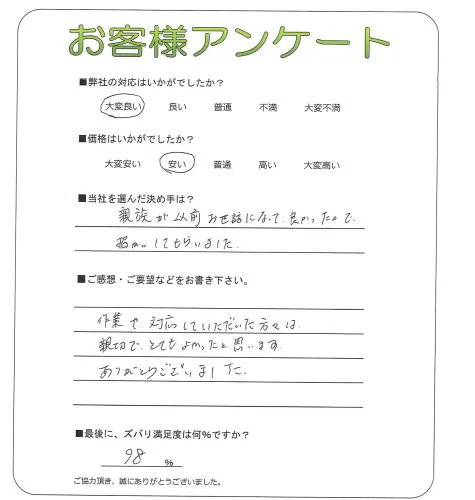 お客様アンケート
■弊社の対応はいかがでしたか?
大変良い 良い 普通 不満 大変不満
■価格はいかがでしたか?
大変安い 安い 普通 高い 大変高い
■当社を選んだ決め手は?
親族が以前お世話になって、良かったので、
してもらいました。
■ご感想・ご要望などをお書き下さい。
作業や対応していただいた方々は、
親切で、とてもよかったと思います。
ありがとうございました。
■最後に、ズバリ満足度は何%ですか?
98 %
ご協力頂き、誠にありがとうございました。